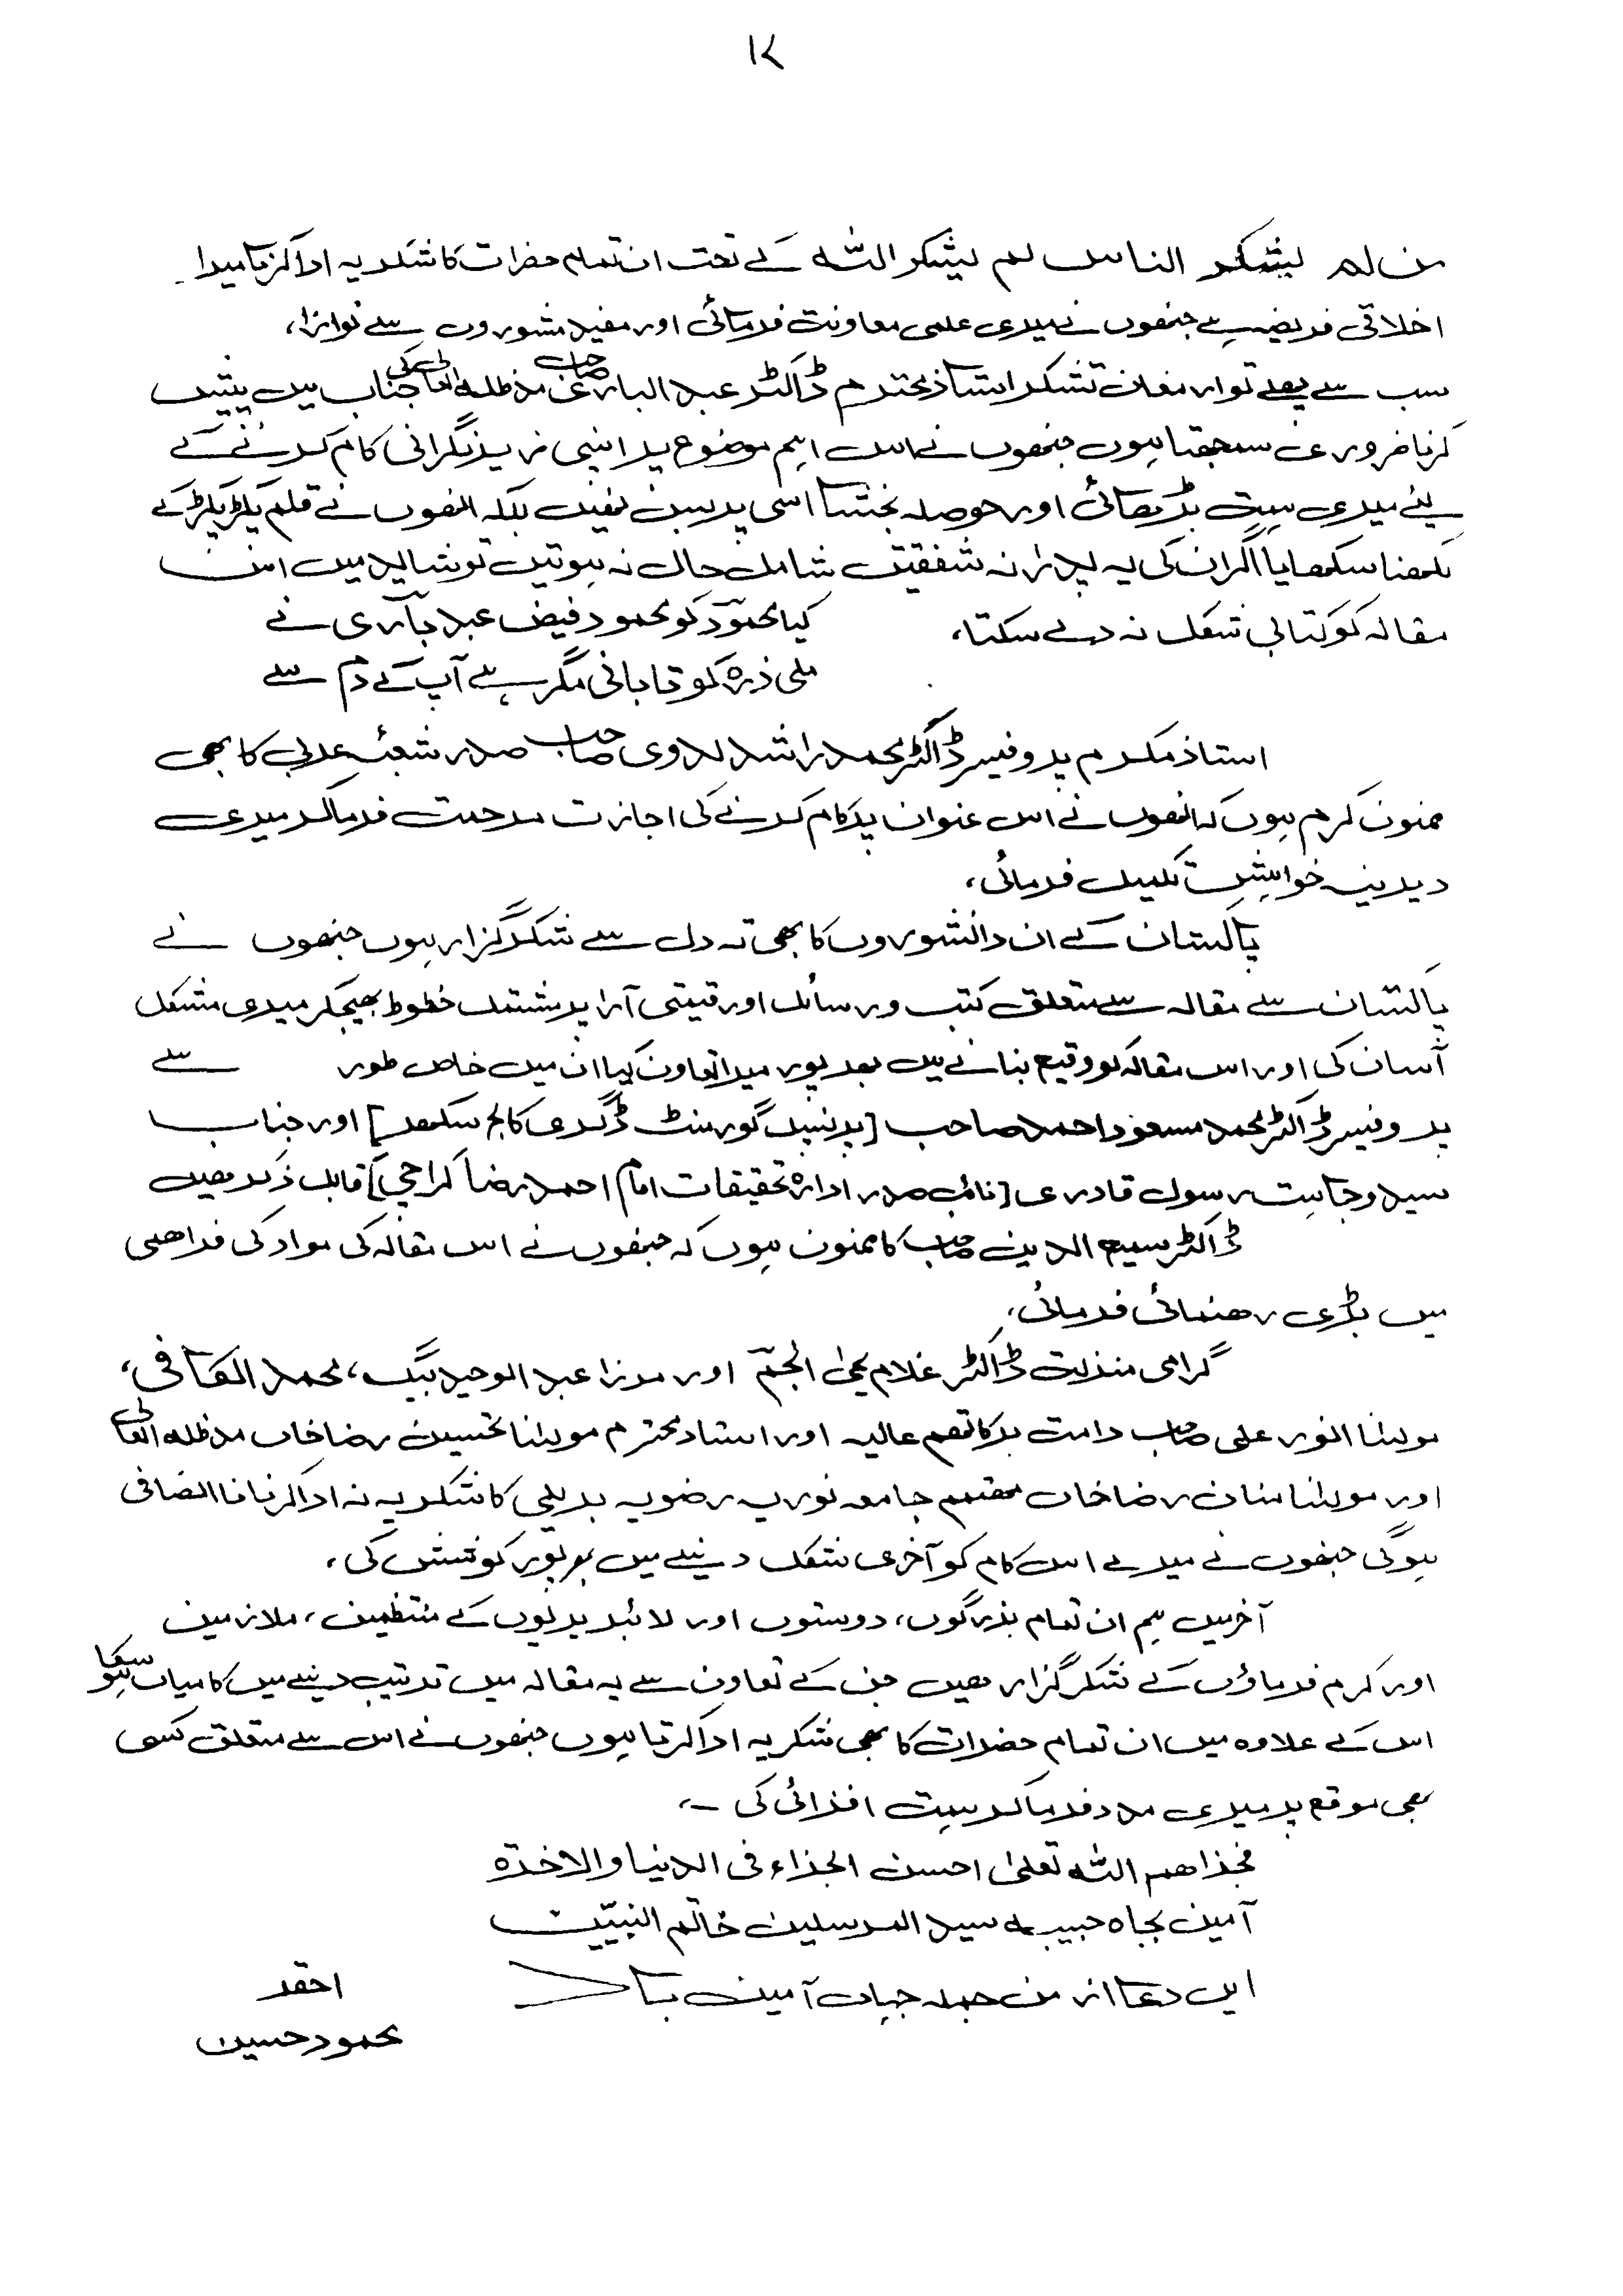 ۱۲
من لم یشکر الناس لم یشکر اللہ کے تحت ان تمام حضرات کا شکریہ ادا کرنا میرا
اخلاقی فریضہ ہے جنھوں نے میری علمی معاونت فرمائی اور مفید مشوروں سے نوازا،
سب سے پہلے تو ارمغان تشکر استاذ محترم ڈاکٹر عبد الباری صاحب مدظلہ العالی کی جناب میں پیش
کرنا ضروری سمجھتا ہوں جنھوں نے اس اہم موضوع پر اپنی زیر نگرانی کام کرنے کے
لیئے میری ہمت بڑھائی اور حوصلہ بخشا اسی پر بس نہیں بلکہ انھوں نے قلم پکڑ پکڑ کے
لکھنا سکھایا اگر ان کی یہ پدرانہ شفقتیں شامل حال نہ ہوتیں تو شاید میں اس
مقالہ کو کتابی شکل نہ دے سکتا،
کیا محمود کو محمود فیض عبد باری نے
ملی ذرہ کو تابانی مگر ہے آپ کے دم سے
استاذ مکرم پروفیسر ڈاکٹر محمد راشد ندوی صاحب صدر شعبۂ عربی کا بھی
ممنون کرم ہوں کہ انھوں نے اس عنوان پر کام کرنے کی اجازت مرحمت فرما کر میری
دیرینہ خواہش کی تکمیل فرمائی،
پاکستان کے ان دانشوروں کا بھی تہ دل سے شکر گزار ہوں جنھوں نے
پاکستان سے مقالہ سے متعلق کتب و رسائل اور قیمتی آرا پر مشتمل خطوط بھیجکر میری مشکل
آسان کی اور اس مقالہ کو وقیع بنانے میں بھر پور میرا تعاون کیا ان میں خاص طور سے
پروفیسر ڈاکٹر محمد مسعود احمد صاحب [پرنسپل گورمنٹ ڈگری کالج سکھر] اور جناب
سید وجاہت رسول قادری [نائب صدر ادارہ تحقیقات امام احمد رضا کراچی] قابل ذکر ھیں
ڈاکٹر سمیع الدین صاحب کا ممنون ہوں کہ جنھوں نے اس مقالہ کی مواد کی فراھمی
میں بڑی رھنمائی فرمائی،
گرامی منزلت ڈاکٹر غلام یحیٰ انجم اور مرزا عبد الوحید بیگ، محمد الکافی،
مولٰنا انور علی صاحب دامت برکاتھم عالیہ اور استاد محترم مولٰنا تحسین رضا خاں مدظلہ العالی
اور مولٰنا منان رضا خاں مھتمم جامعہ نوریہ رضویہ بریلی کا شکریہ نہ ادا کرنا نا انصافی
ہوگی جنھوں نے میرے اس کام کو آخری شکل دینے میں بھر پور کوشش کی،
آخر میں ہم ان تمام بزرگوں، دوستوں اور لائبریریوں کے منتظمین، ملازمین
اور کرم فرماؤں کے شکر گزار ھیں جن کے تعاون سے یہ مقالہ میں ترتیب دینے میں کامیاب ہو سکا
اس کے علاوہ میں ان تمام حضرات کا بھی شکریہ ادا کرتا ہوں جنھوں نے اس سے متعلق کسی
بھی موقع پر میری مدد فرما کر ہمت افزائی کی ۔،
فجزاھم اللہ تعلیٰ احسن الجزاء فی الدنیا والاخرۃ
آمین بجاہ حبیبہ سید المرسلین خاتم النبیین
ایں دعا از من جملہ جہاں آمین باد
احقر
محمود حسین